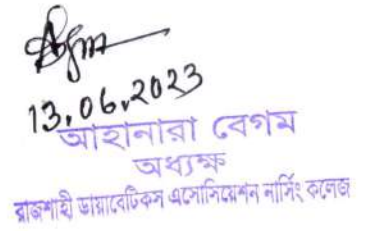 13.06.2023
আহানারা বেগম
অধ্যক্ষ
রাজশাহী ডায়াবেটিকস এসোসিয়েশন নার্সিং কলেজ